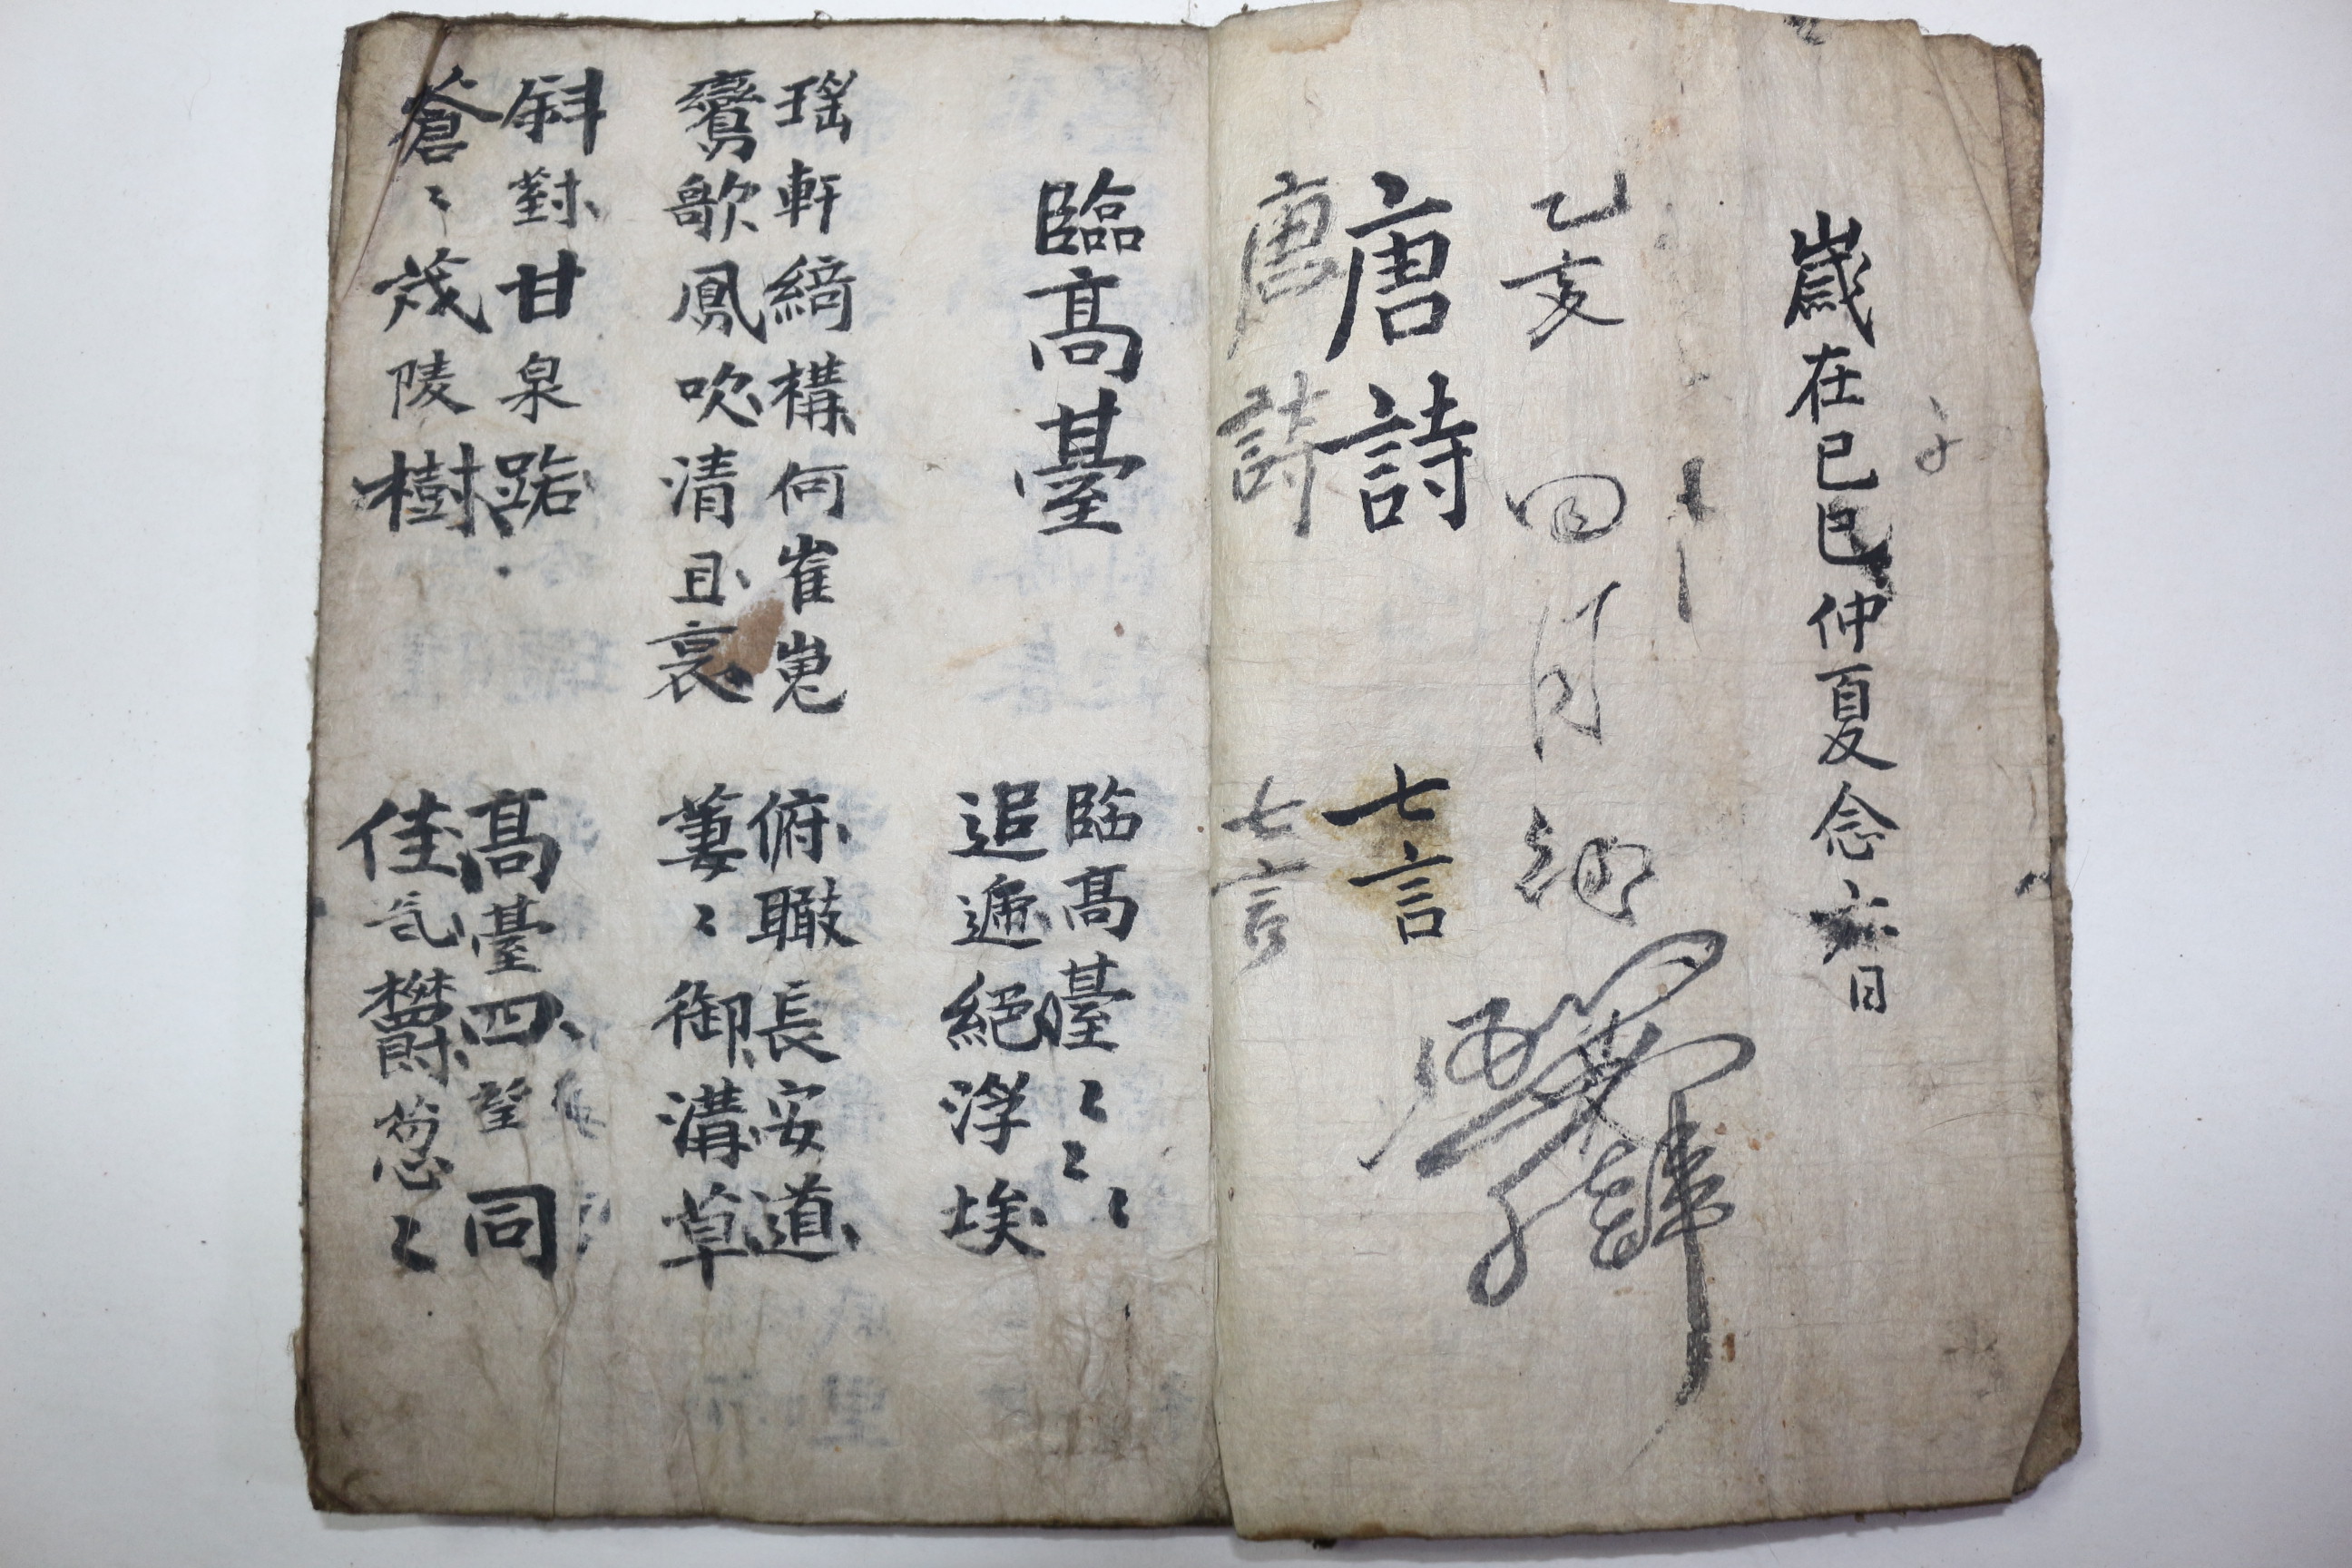 歲在己巳仲夏念六日
乙亥四月
唐詩 七言
唐詩 七言
臨高臺
臨高臺〻〻〻
迢遞絕浮埃
瑤軒綺構何崔嵬
鸞歌鳳吹清且哀
俯瞰長安道
萋〻御溝草
斜對甘泉路
蒼〻茂陵樹
高臺四望同
佳氣欝葱〻